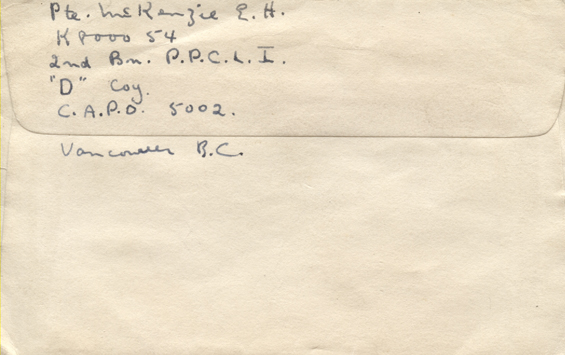 Pte. McKenzie E. H.
K 8000 54
2nd Bn. P.P.C.L.I.
"D" Coy.
C.A.P.O. 5002.
Vancouver B.C.